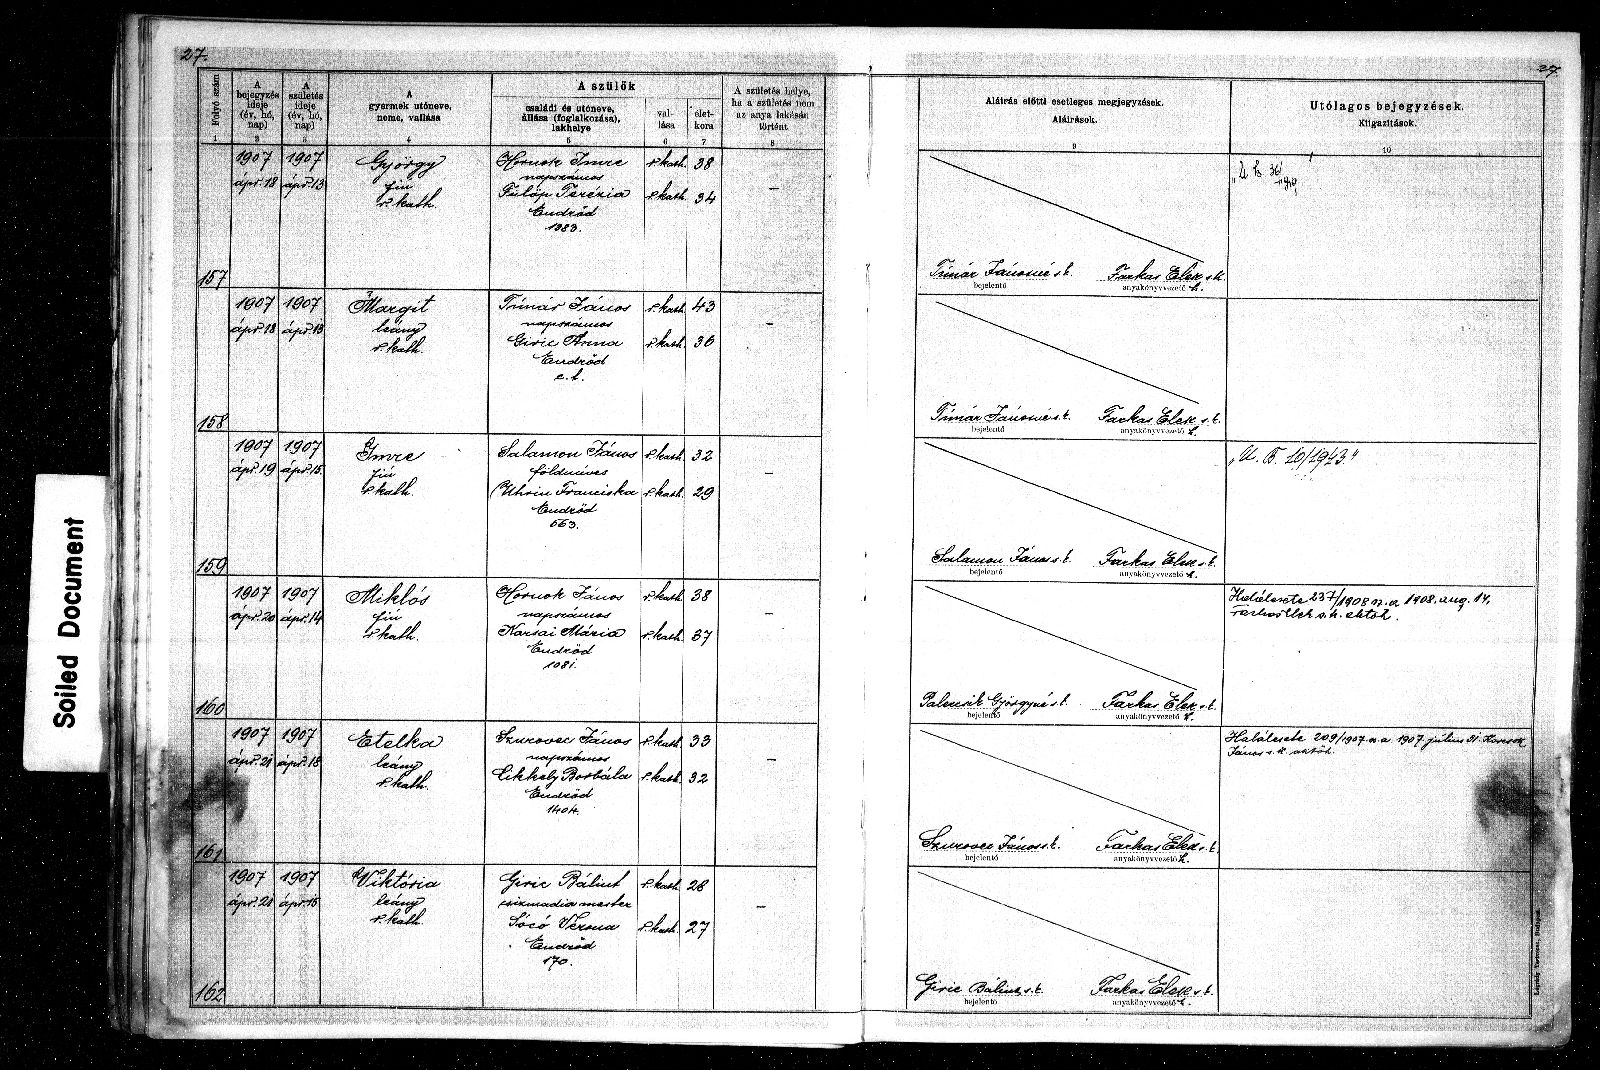 27.
27.
Folyó szám
A bejegyzés ideje (év, hó, nap)
A születés ideje (év, hó, nap)
A gyermek utóneve, neme, vallása
A szülők
családi és utóneve, állása (foglalkozása), lakhelye
vallása
életkora
A születés helye, ha a születés nem az anya lakásán történt
Aláírás előtti esetleges megjegyzések.
Aláírások.
Utólagos bejegyzések.
Kiigazítások.
1 2 3 4 5 6 7 8 9 10
1907 1907 György Hornok Imre r. kath. 38
ápr. 18 ápr. 13 fiú napszámos
r. kath. Fülöp Terézia r. kath. 34 –
Endrőd
1383.
157
Tímár Jánosné s. k. Farkas Elek s. k.
bejelentő anyakönyvvezető h.
1907 1907 Margit Tímár János r. kath. 43
ápr. 18 ápr. 13 leány napszámos –
r. kath. Giric Anna r. kath. 36
Endrőd
158
Tímár Jánosné s. k. Farkas Elek s. k.
bejelentő anyakönyvvezető h.
1907 1907 Imre Salamon János r. kath. 32
ápr. 19 ápr. 15 fiú földmíves –
r. kath. Uhrin Franciska r. kath. 29
Endrőd
563.
159
Salamon János s. k. Farkas Elek s. k.
bejelentő anyakönyvvezető h.
„U. B. 10/1943."
1907 1907 Miklós Hornok János r. kath. 38
ápr. 20 ápr. 14 fiú napszámos –
r. kath. Karsai Mária r. kath. 37
Endrőd
1081.
160
Palencsik Györgyné s. k. Farkas Elek s. k.
bejelentő anyakönyvvezető h.
Halálesete 237/1908 sz. a 1908. aug. 14.
s. h. aktóh.
1907 1907 Etelka Szurovec János r. kath. 33
ápr. 21 ápr. 18 leány napszámos –
r. kath. Cikkely Borbála r. kath. 32
Endrőd
1404.
161
Szurovec János s. k. Farkas Elek s. k.
bejelentő anyakönyvvezető h.
Halálesete 209/1907 sz. a 1907 július 31.
János s. k. aktóh.
1907 1907 Viktória Giric Bálint r. kath. 28
ápr. 21 ápr. 15 leány csizmadia mester
r. kath. Sócó Verona r. kath. 27 –
Endrőd
170.
162
Giric Bálint s. k. Farkas Elek s. k.
bejelentő anyakönyvvezető h.
Soiled Document